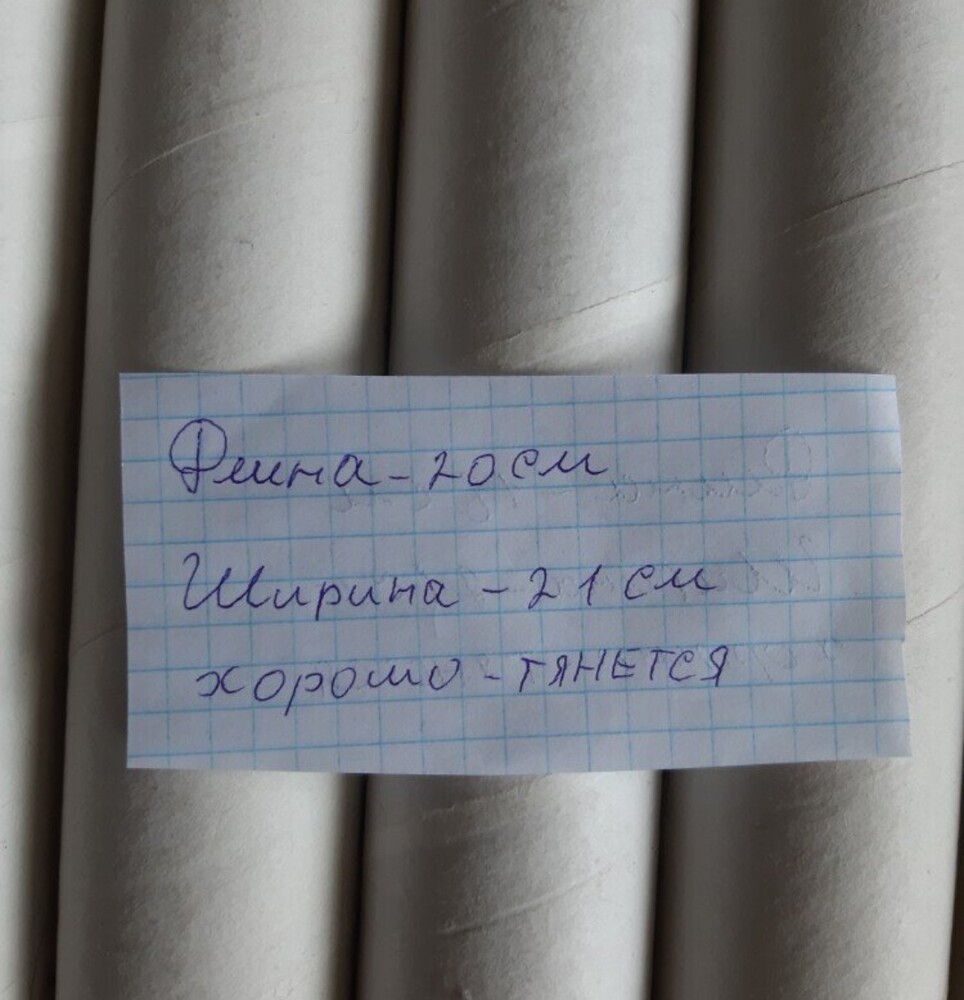 Длина - 20 см
Ширина - 21 см
хорошо - ТЯНЕТСЯ